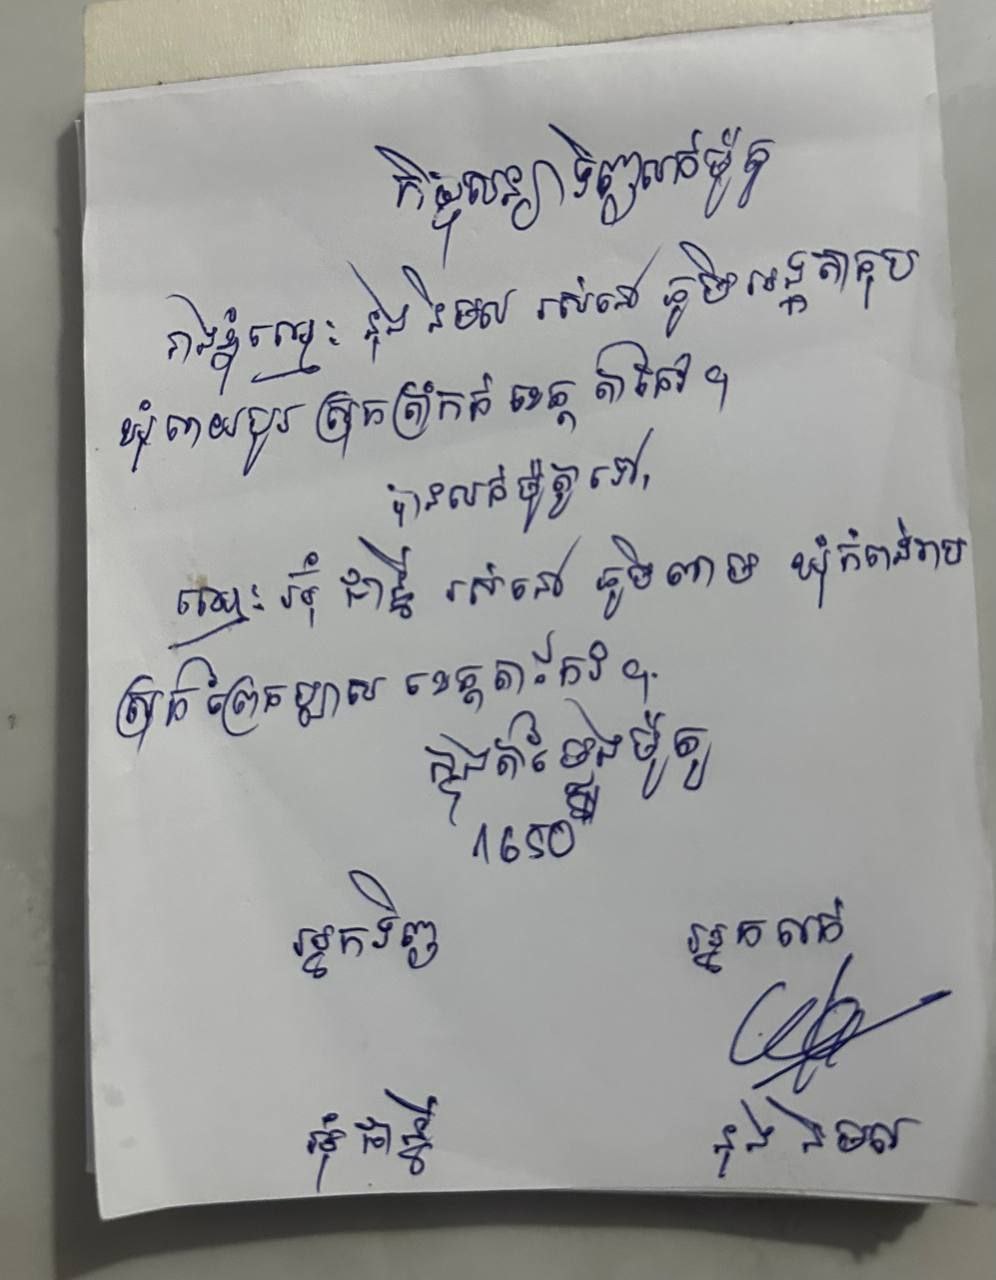 កិច្ចសន្យាទិញលក់ម៉ូតូ
រាងខ្ញុំឈ្មោះ នុង និមល រស់នៅ ភូមិអង្គតានុប
ឃុំពាយបូរ ស្រុកត្រាំកក់ ខេត្ត តាកែវ ។
បានលក់ម៉ូតូទៅ,
ឈ្មោះ អ៊ុំ ជាន្នី រស់នៅ ភូមិពាម ឃុំកំពង់រាប
ស្រុកព្រៃកប្បាស ខេត្តតាកែវ ។
ក្នុងតំម្លៃម៉ូតូ
1650
អ្នកទិញ អ្នកលក់
អ៊ុំ ជាន្នី នុង និមល